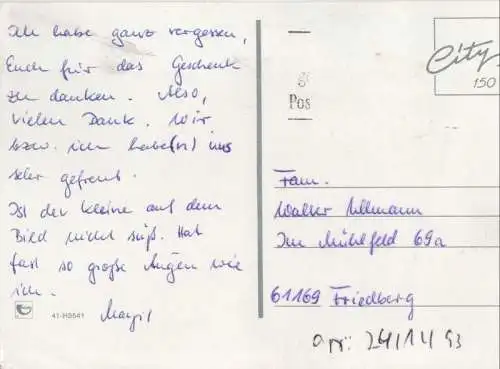 Ich habe ganz vergessen,
Euch für das Geschenk
zu danken. Also,
vielen Dank. Wir
bzw. ich habe(n) uns
sehr gefreut.
Ist der kleine auf dem
Bild nicht süß. Hat
fast so große Augen wie
ich.
41-H8641
City
150
Pos
Fam.
Walter Ullmann
Im Mühlfeld 69a
61169 Friedberg